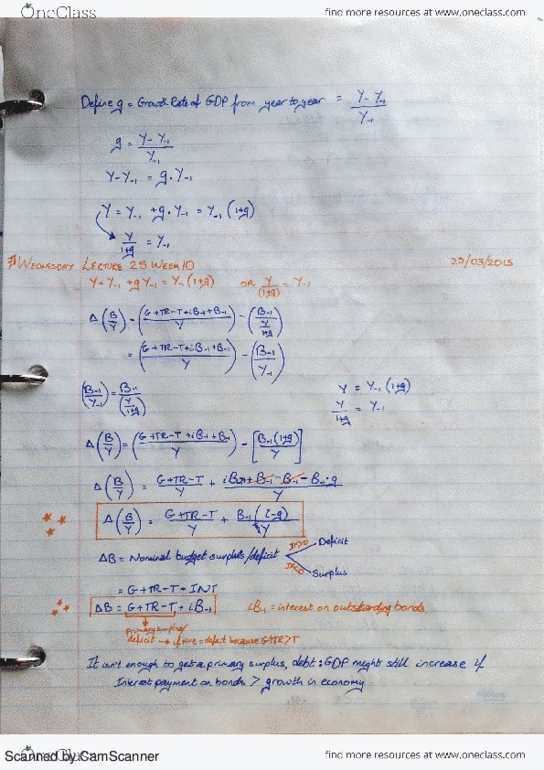 OneClass
find more resources at www.oneclass.com
Define g = Growth Rate of GDP from year to year = Y-Y₋₁/Y₋₁
g = Y-Y₋₁/Y₋₁
Y-Y₋₁ = g.Y₋₁
Y = Y₋₁ + g.Y₋₁ = Y₋₁ (1+g)
Y/1+g = Y₋₁
WEDNESDAY LECTURE 25 WEEK 10 25/03/2015
Y = Y₋₁ + gY₋₁ = Y₋₁(1+g) OR Y/(1+g) = Y₋₁
Δ(B/Y) = (G+TR-T+iB₋₁+B₋₁/Y) - (B₋₁/(Y/1+g))
= (G+TR-T+iB₋₁+B₋₁/Y) - (B₋₁/Y₋₁)
(B₋₁/Y₋₁) = B₋₁/(Y/1+g) Y = Y₋₁ (1+g)
Y/1+g = Y₋₁
Δ(B/Y) = (G+TR-T+iB₋₁+B₋₁/Y) - [B₋₁(1+g)/Y]
Δ(B/Y) = G+TR-T/Y + iB₋₁+B₋₁-B₋₁-B₋₁.g/Y
Δ(B/Y) = G+TR-T/Y + B₋₁(i-g)/Y
ΔB = Nominal budget surplus/deficit If>0 Deficit
If<0 Surplus
= G+TR-T+INT
ΔB = G+TR-T+iB₋₁ iB₋₁ = interest on outstanding bonds
primary surplus/
deficit → if +ive = deficit because G+TR>T
It isn't enough to get a primary surplus, debt:GDP might still increase if
Interest payment on bonds > growth in economy
Scanned by CamScanner
OneClass
find more resources at www.oneclass.com